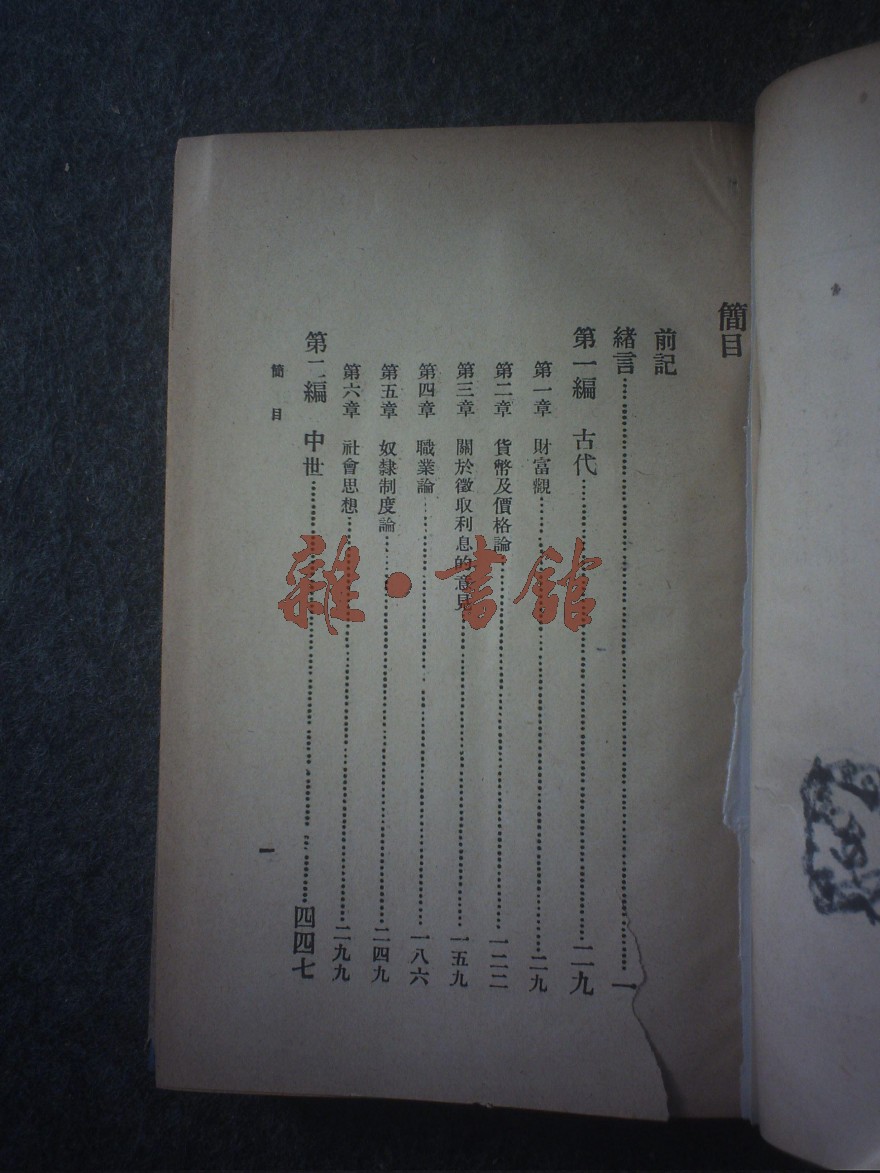 簡目
前記
緒言……一
第一編　古代……二九
第一章　財富觀……二九
第二章　貨幣及價格論……一二二
第三章　關於徵取利息的意見……一五九
第四章　職業論……一八六
第五章　奴隸制度論……二四九
第六章　社會思想……二九九
第二編　中世……四四七
簡目
一
雜·書館